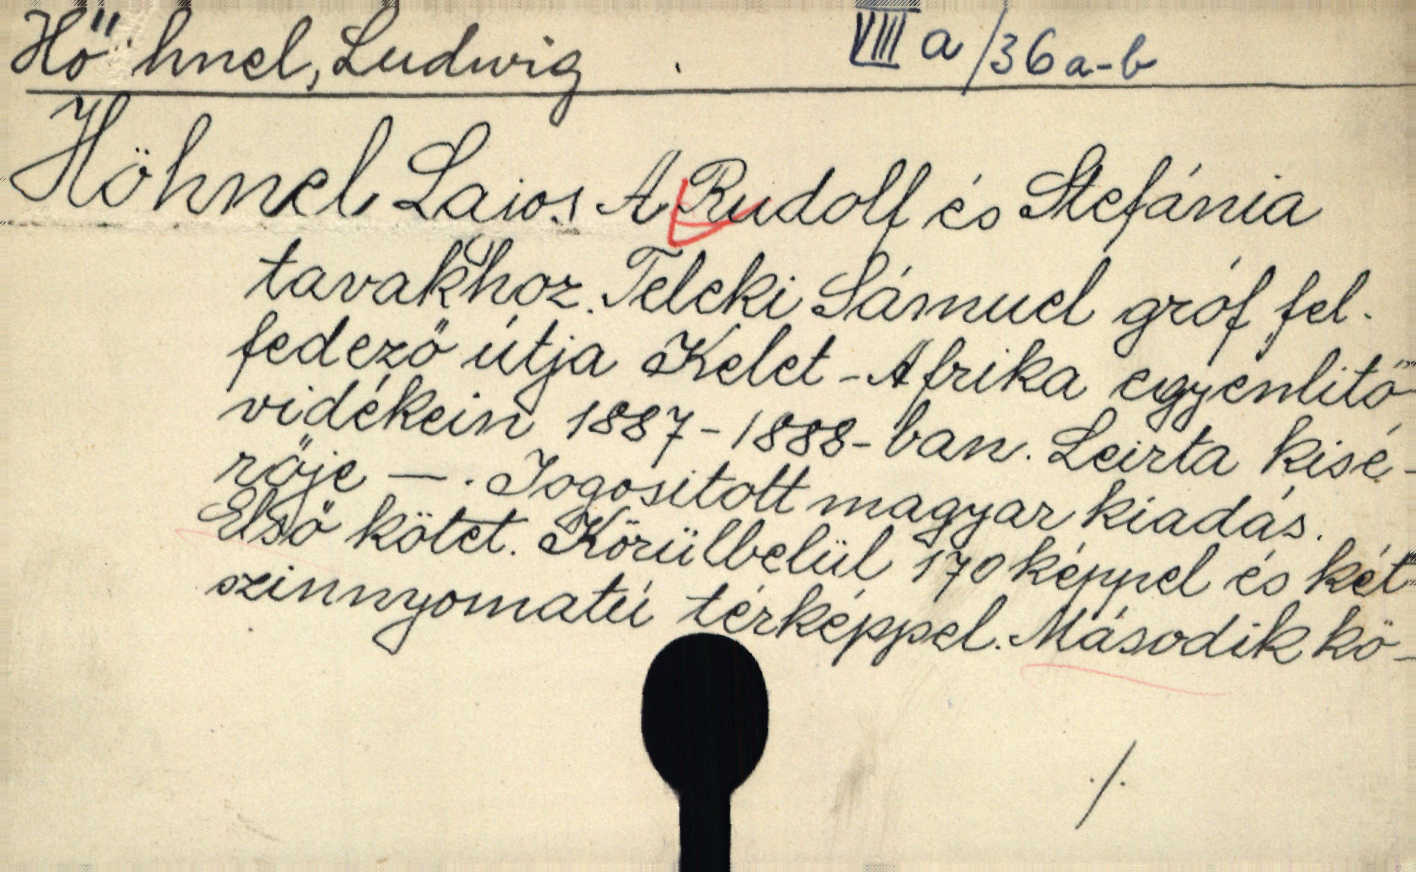 Hö"hnel, Ludwig . VIII a/36a-b
Höhnel Lajos A Rudolf és Stefánia
tavakhoz. Teleki Sámuel gróf fel-
fedező útja Kelet-Afrika egyenlitő
vidékein 1887-1888-ban. Leirta kisé-
rője —. Jogositott magyar kiadás.
Első kötet. Körülbelül 170 képpel és két
szinnyomatú térképpel. Második kö-
./.